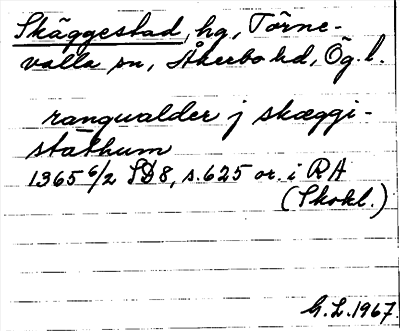 Skäggestad, hg, Törne-
valla sn, Åkerbo hd, Ög. l.
ranqualder j skæggi-
stathum
1365 6/2 SD8, s. 625 or. i RA
(Skokl.)
G. L. 1967.